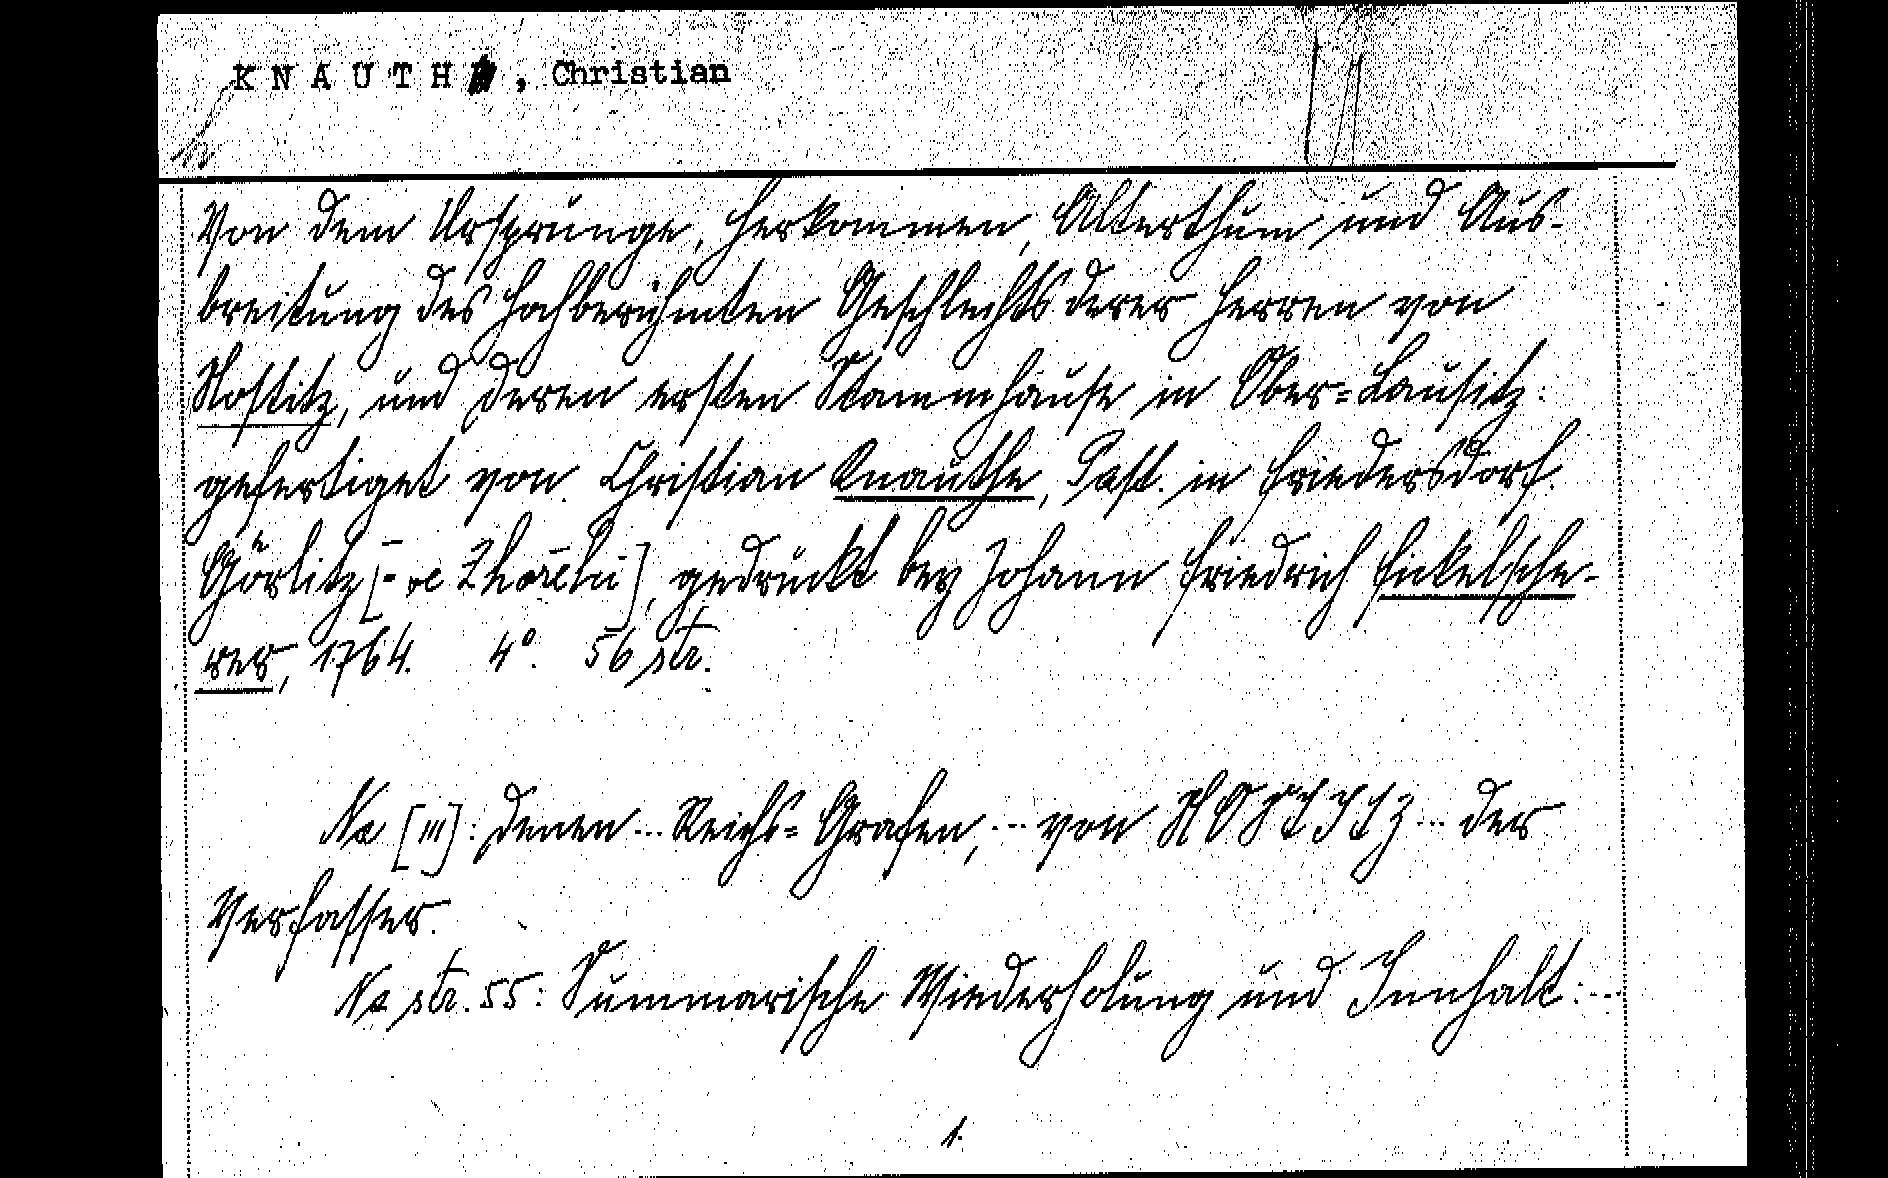 KNAUTH, Christian
Von dem Ursprunge, Herkommen, Alterthum und Aus-
breitung des hochberühmten Geschlechts derer Herren von
Nostitz, und deren ersten Stammhause in Ober=Lausitz:
gefertiget von Christian Knauthe, Past. in Friedersdorf.
Görlitz [= ve Zhořelci], gedruckt bey Johann Friedrich Fickelsche-
rer, 1764. 4°. 56 str.
Na [III]: Denen ... Reichs= Grafen, ... von NOSTITZ ... der
Verfasser.
Na str. 55: Summarische Wiederholung und Innhalt: ...
1.